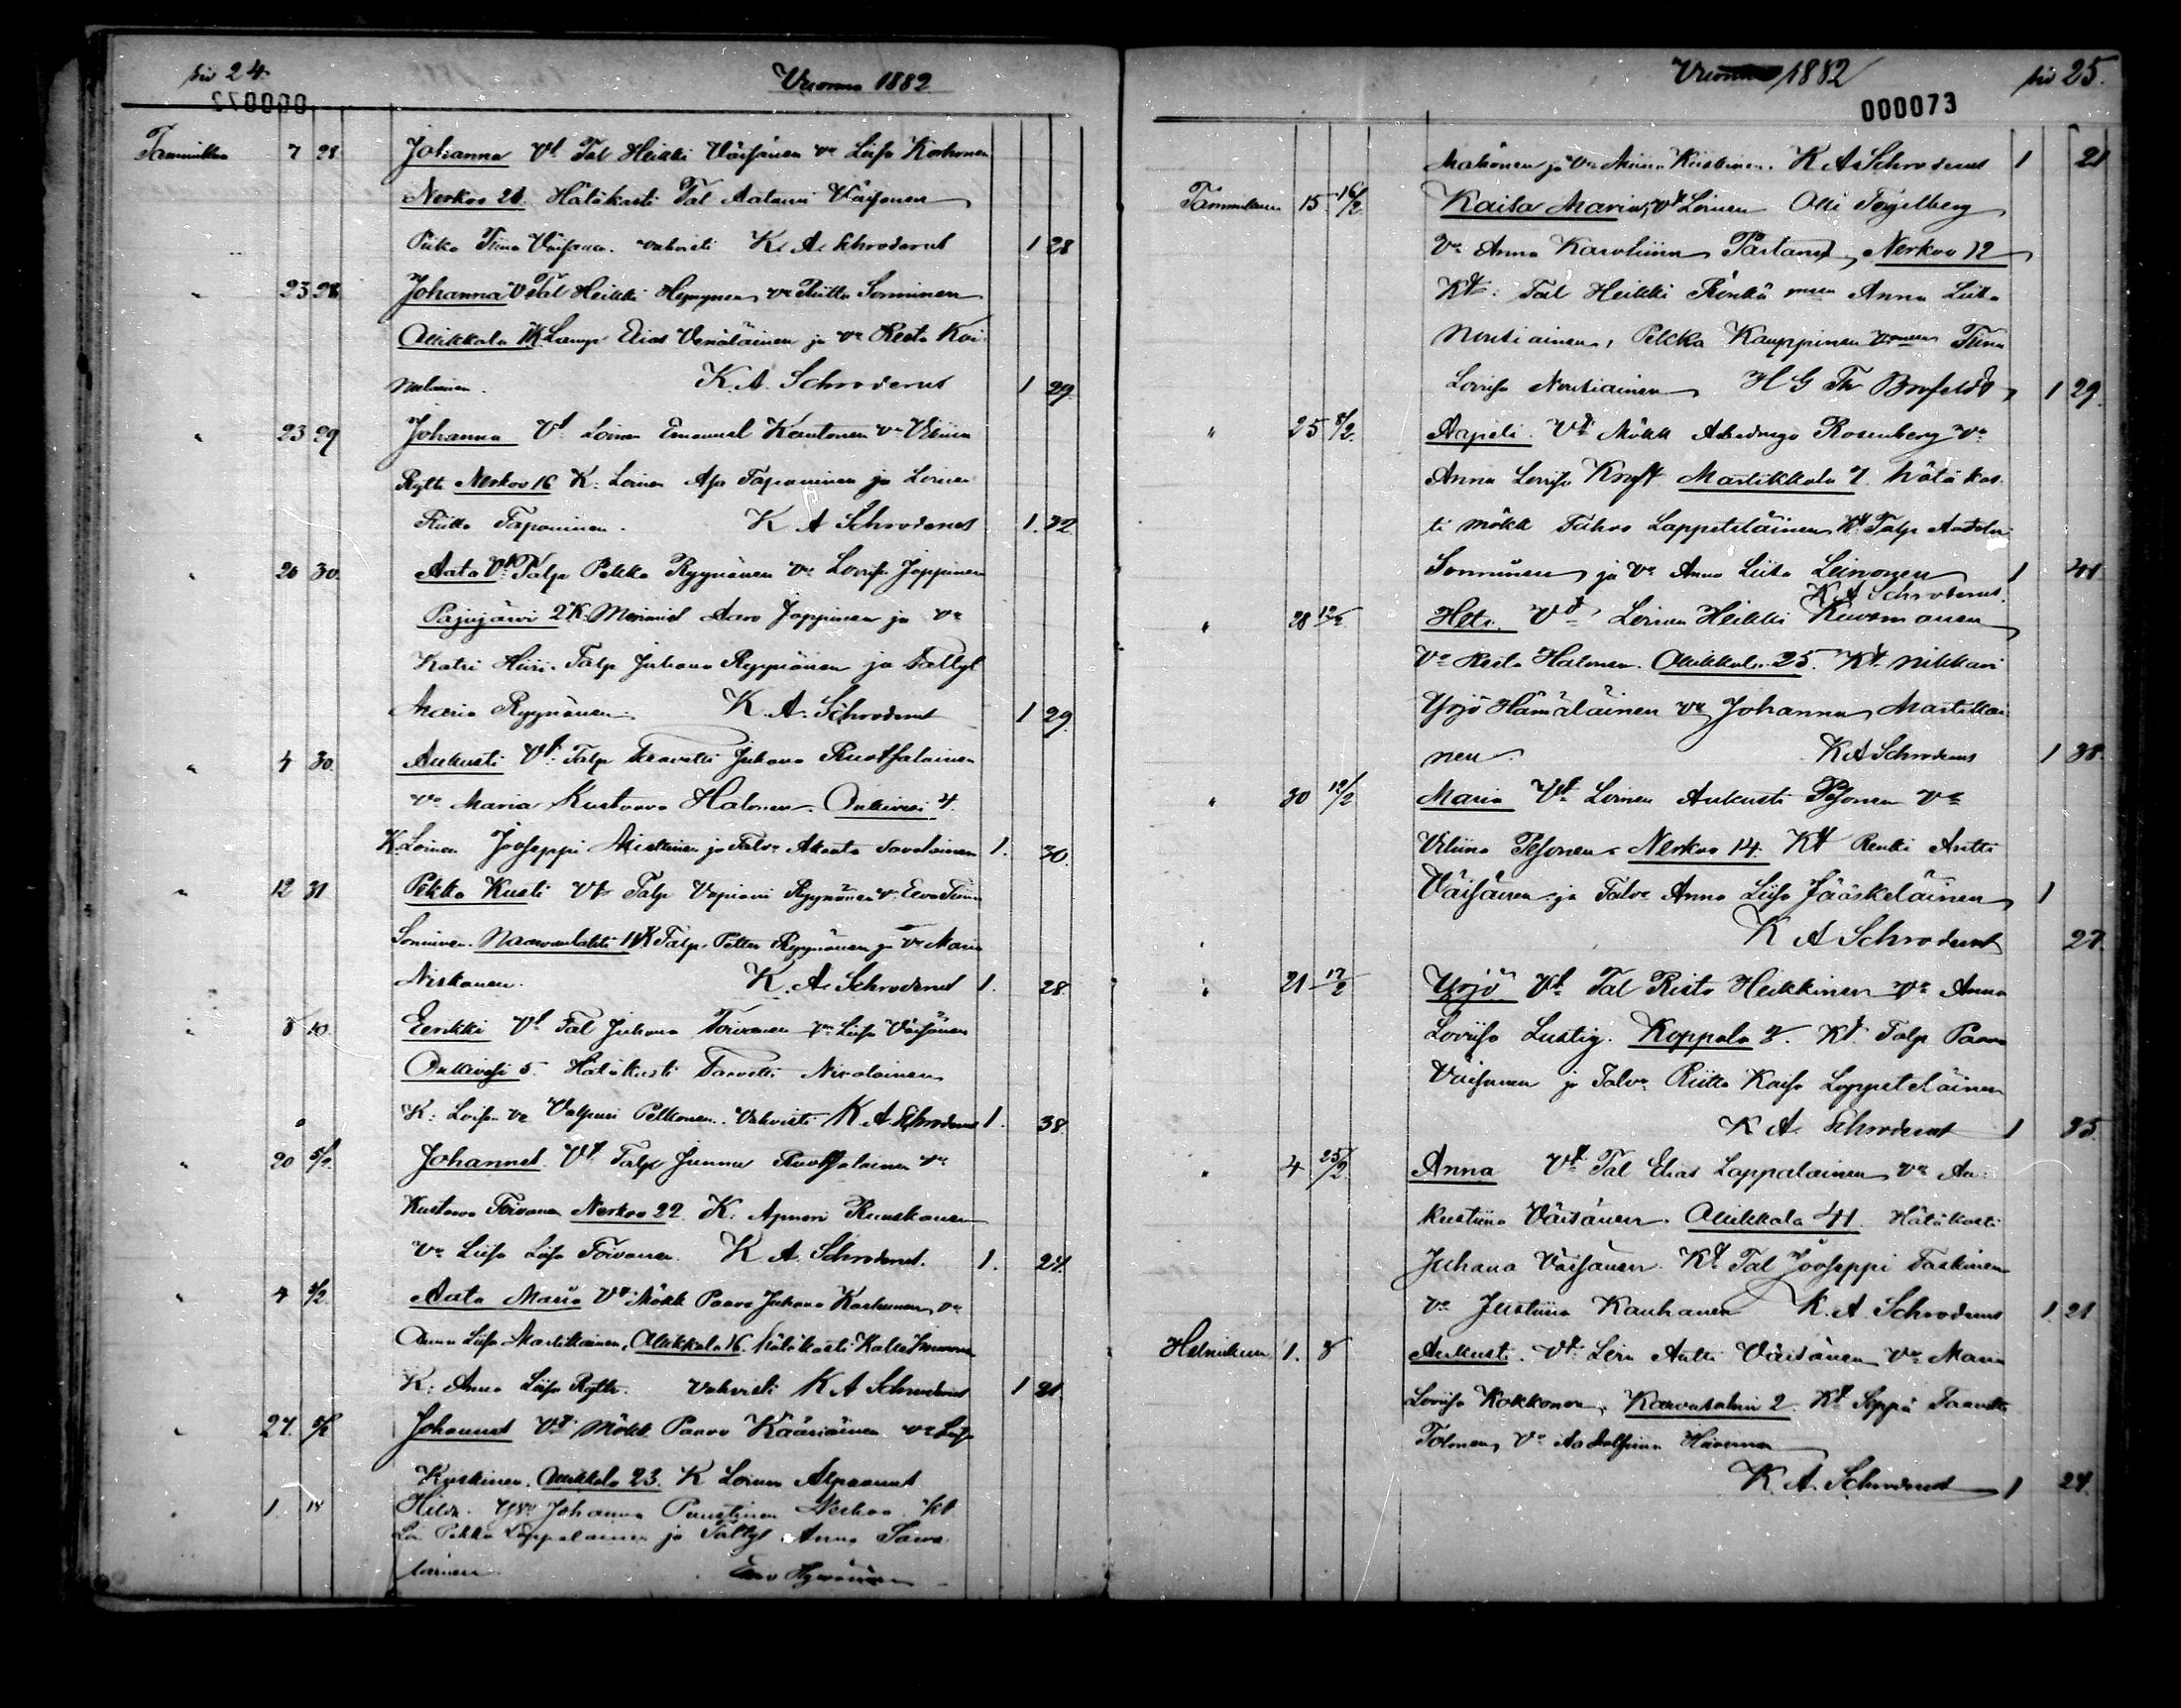 siv 24.
Vuonna 1882
000072
Tammikuu 7 28 Johanna Vt Tal Heikki Väisänen vo Liisa Korhonen
Nerkoo 21. Hätäkasti Tal Aatami Väisänen
Piika Tiina Väisänen. vahvisti K. A. Schroderus 1 28
" 23 28 Johanna Vt Tal Heikki Heynynen vo Riitta Sorminen
Ollikkala K. Lamp Elias Venäläinen ja vo Reeta Kai-
nulainen. K. A. Schroderus 1 29
" 23 29 Johanna Vt Loinen Emanuel Kantonen vo Viliina
Rytti Nerkoo 16 K: Loinen Apr Taponinen ja Loinen
Riitta Taponinen. K A Schroderus 1. 32.
" 26 30. Aato Vt Talp Pekka Ryynänen vo Loviisa Joppinen
Pajujärvi 2 K. Merimies Aaro Joppinen ja vo
Katri Hiiri. Talp Juhana Ryynänen ja Taltyt
Maria Ryynänen. K. A. Schroderus 1 29.
" 4 30. Aukusti Vt Talp Taavetti Juhana Ruotsalainen
vo Maria Kustaava Halonen. Onkivesi 4.
K. Loinen Jooseppi Miettinen ja Talvo Akaata Savolainen 1. 30.
" 12 31 Pekka Kusti Vt Talp Vapriani Ryynänen vo Eeva Tiina
Sorminen. Naarvanlahti K Talp. Petter Ryynänen ja vo Maria
Niskanen. K. A. Schroderus 1. 28.
" 8 10. Eerikki Vt Tal Juhana Toivanen vo Liisa Väisänen
Onkivesi 5. Hätäkasti Taavetti Nivalainen
K: vo Valpuri Pelkonen. Vahvisti K. A. Schroderus 1. 38.
" 20 5/2 Johannes Vt Talp Junnu Ruotsalainen vo
Kustava Toivanen Nerkoo 22. K: Apmeri Ruuskanen
vo Liisa Liisa Toivanen. K. A. Schroderus. 1. 24.
" 4 /2. Aata Maria Vt Mökk Paavo Juhana Karhunen, vo
Anna Liisa Martikainen, Ollikkala 16. Hätäkasti Kalle Immonen
K: Anna Liisa Rytti. vahvisti K A Schroderus 1 21.
" 27. /2 Johannes Vt Mökk Paavo Kääriäinen vo Liisa
Kiiskinen. Ollikkala 23. K Loinen Alpraamet
" 1. 18 Hilda. Johanna Puustinen Nerkoo. Kt
Loi Pekka Lappalainen ja Taltyt Anna Savo-
lainen. Hyvärinen
Vuonna 1882
siv 25.
000073
Makonen ja vo Miina Kiiskinen. K. A. Schroderus 1 21
Tammikuu 15. 16/2. Kaisa Maria, Vt Loinen Olli Fogelberg
vo Anna Karoliina Partanen, Nerkoo 12
Kt: Tal Heikki Rönkä vmon Anna Liisa
Noutiainen, Pekka Kauppinen vmon Tiina
Loviisa Noutiainen H G Th Brofeldt 1 29.
" 25 8/2. Aapeli. Vt Mökk Abednego Rosenberg vo
Anna Loviisa Kraft Martikkala 7. hätäkas-
ti Mökk Tahvo Lappeteläinen Kt Talp Aadolvi
Sorminen ja vo Anna Liisa Leinonen 1 41.
K. A. Schroderus.
" 28 12/2. Heta. Vt Loinen Heikki Kuosmanen
vo Reeta Halonen. Ollikkala 25. Kt nikkari
Yrjö Hämäläinen vo Johanna Martikai-
nen. K A Schroderus 1 38.
" 30 12/2 Maria Vt Loinen Aukusti Pesonen vo
Viliina Pesonen. Nerkoo 14. Kt Renki Antti
Väisänen ja Talvo Anna Liisa Jääskeläinen 1
K A Schroderus 27.
" 21 17/2 Yrjö Vt Tal Risto Heikkinen vo Anna
Loviisa Lustig. Koppala 8. Kt Talp Paavo
Väisänen ja Talvo Riitta Kaisa Lappeteläinen
K. A. Schroderus 1 35.
" 4 25/2. Anna Vt Tal Elias Lappalainen vo Au-
kustiina Väisänen. Ollikkala 41. Hätäkasti
Juhana Väisänen. Kt Tal Jooseppi Taskinen
vo Justiina Kauhanen K. A. Schroderus 1. 21
Helmikuu 1. 8 Aukusti. Vt Loin Antti Väisänen vo Maria
Loviisa Kokkonen, Kaarvasalmi 2. Kt Seppä Taavetti
Tolonen, vo Aadolfiina Hiironen
K. A. Schroderus 1 24.